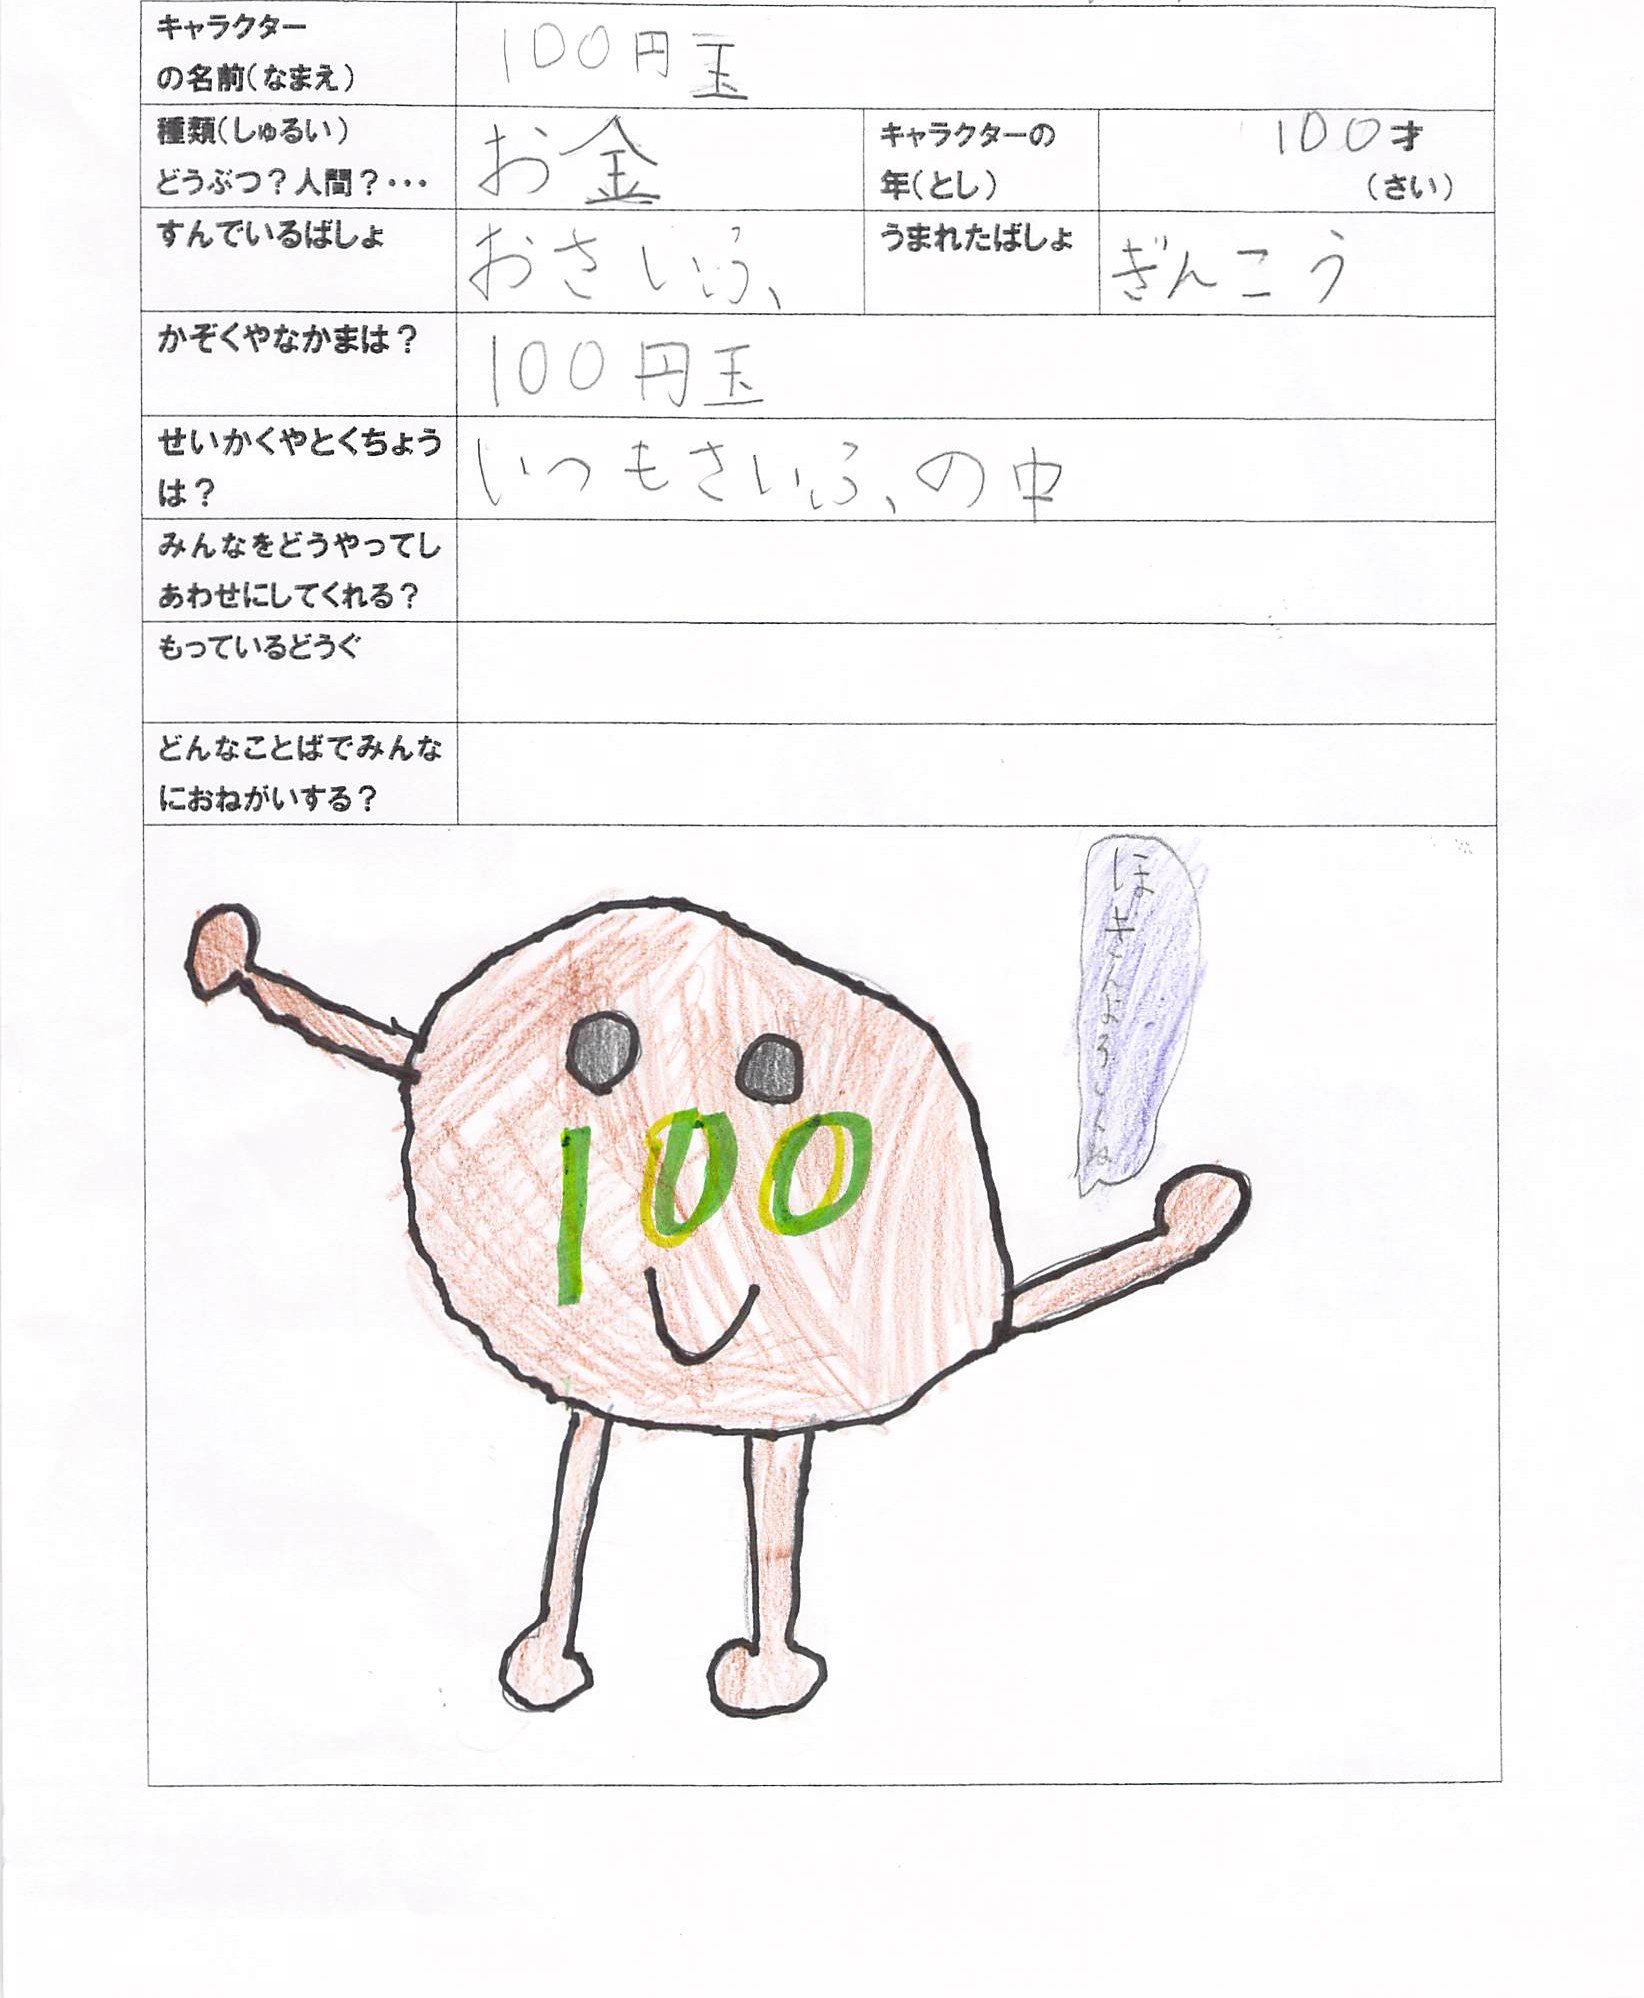 キャラクター
の名前(なまえ)
100円玉
種類(しゅるい)
どうぶつ?人間?・・・
お金
キャラクターの
年(とし)
100才
(さい)
すんでいるばしょ
おさいふ
うまれたばしょ
ぎんこう
かぞくやなかまは?
100円玉
せいかくやとくちょう
は?
いつもさいふの中
みんなをどうやってし
あわせにしてくれる?
もっているどうぐ
どんなことばでみんな
におねがいする?
ぼきんよろしくね
100